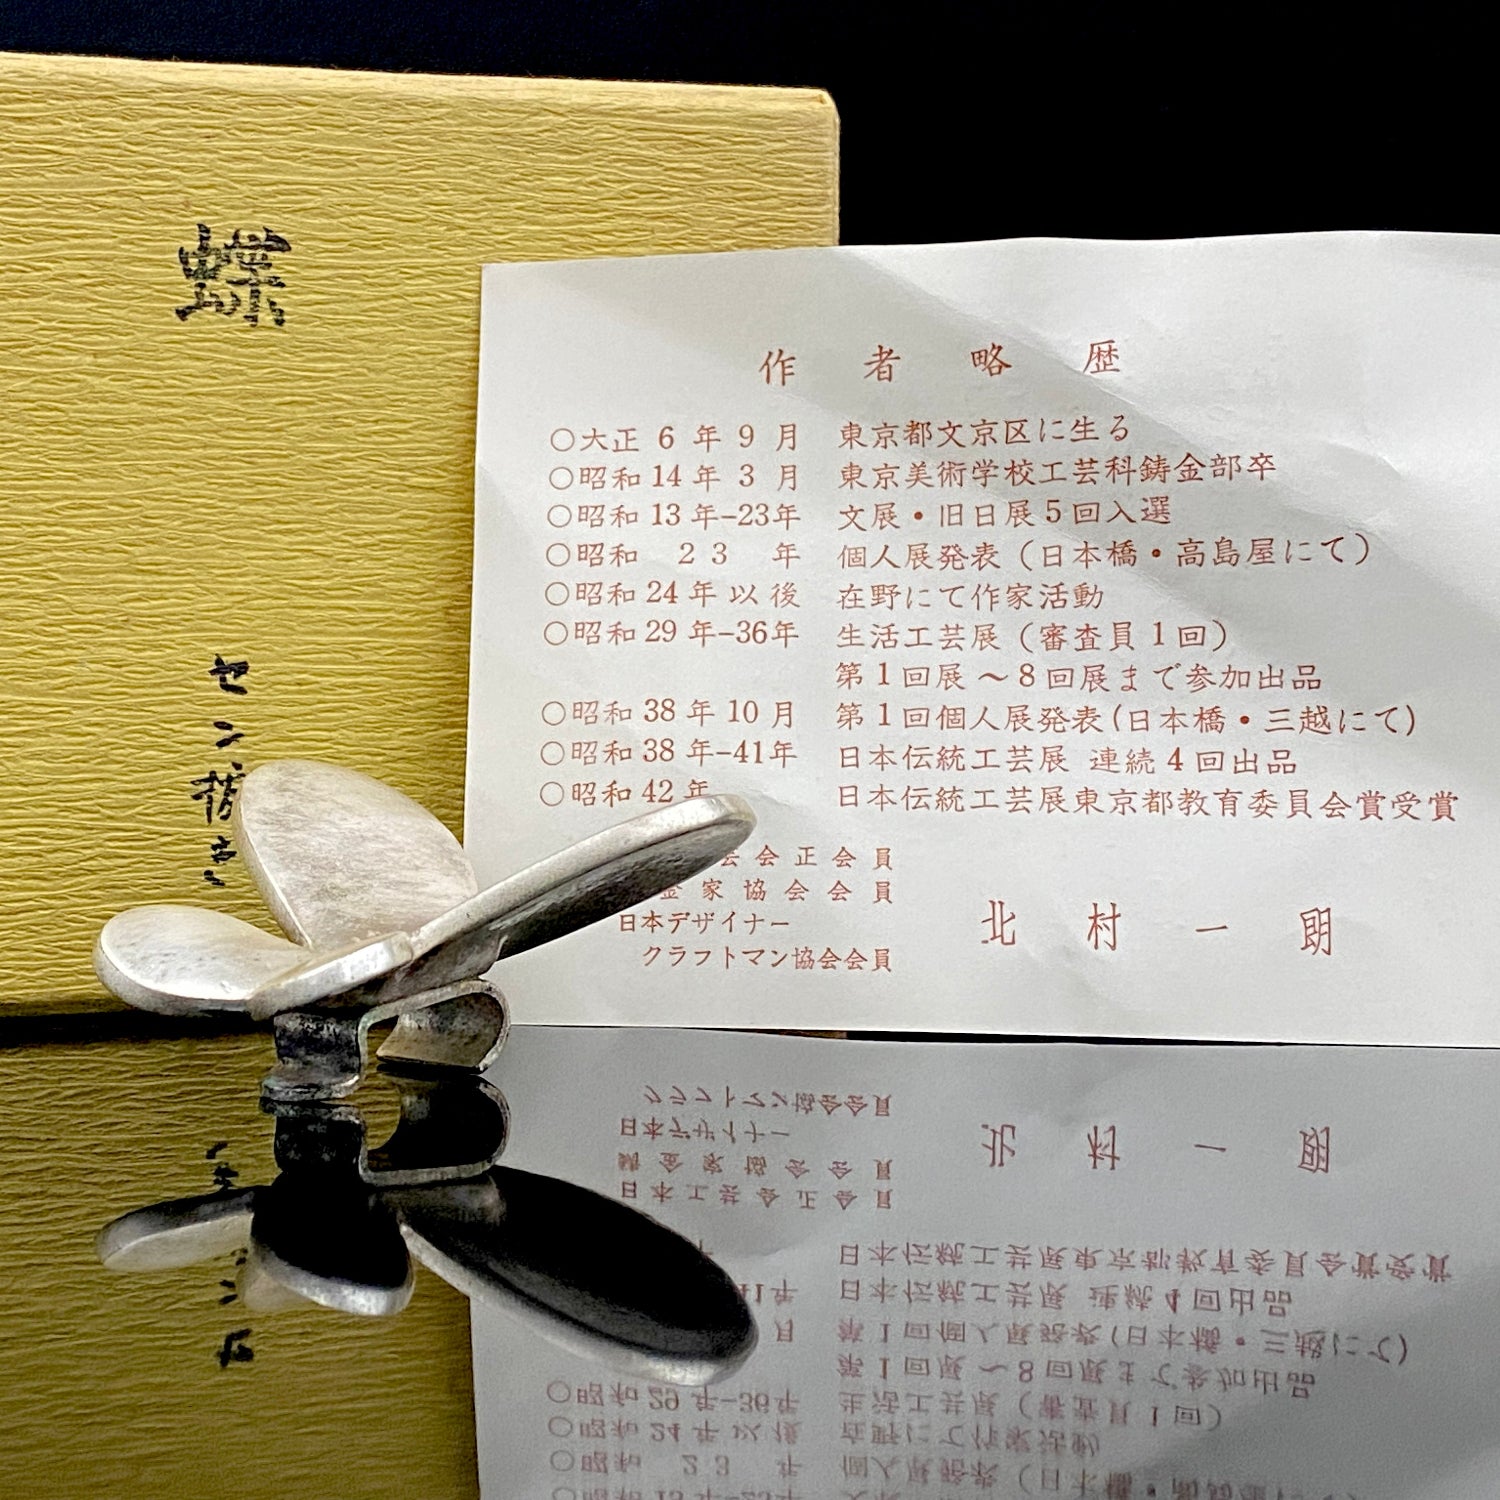 蝶
セン抜き
作者略歴
○大正6年9月 東京都文京区に生る
○昭和14年3月 東京美術学校工芸科鋳金部卒
○昭和13年−23年 文展・旧日展5回入選
○昭和23年 個人展発表(日本橋・高島屋にて)
○昭和24年以後 在野にて作家活動
○昭和29年−36年 生活工芸展(審査員1回)
第1回展〜8回展まで参加出品
○昭和38年10月 第1回個人展発表(日本橋・三越にて)
○昭和38年−41年 日本伝統工芸展 連続4回出品
○昭和42年 日本伝統工芸展東京都教育委員会賞受賞
芸会正会員
金家協会会員
日本デザイナー
クラフトマン協会会員
北村一朗